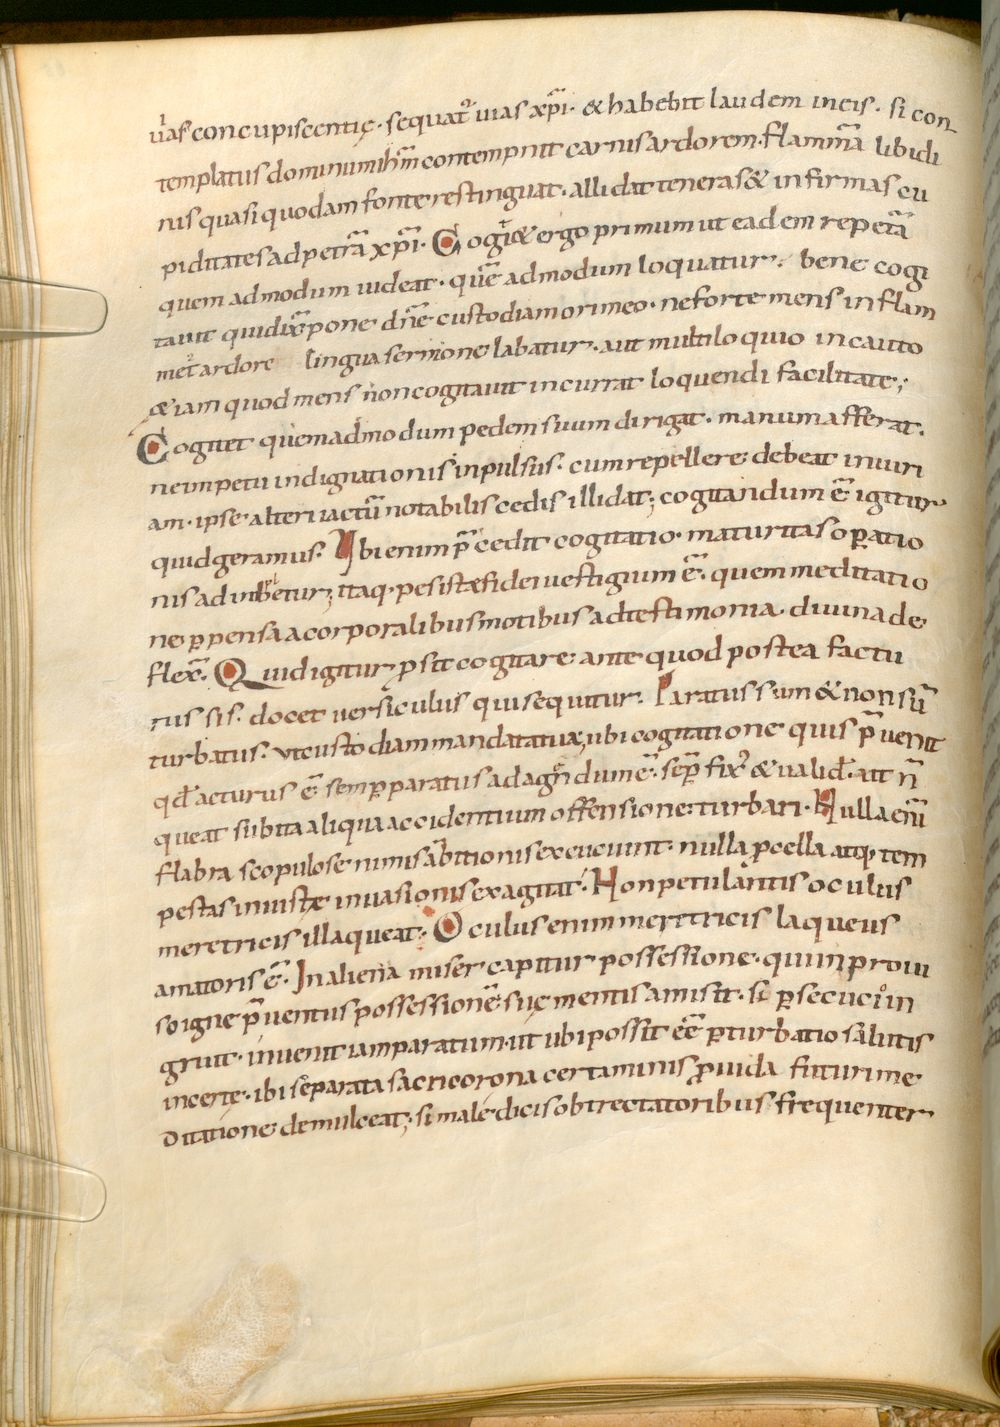 ur̄as concupiscentię. sequat᷑ uias xp̄i. & habebit laudem in eis. si con
templatus dominum ih̄m contempnit carnis ardorem. flamm̄a libidi
nis quasi quodam fonte restinguat. allidat teneras & infirmas cu
piditates ad petrā xp̄i. Cogit& ergo primum ut eadem repetā
quem admodum uideat. quē admodum loquatur. bene cogi
tauit qui dix̄ pone dn̄e custodiam ori meo. ne forte mens inflam
met᷑ ardore lingua sermone labatur. aut multiloquio incauto
& iam quod mens non cogitauit incurrat loquendi facilitate;
Cogitet quemadmodum pedem suum dirigat. manum afferat.
ne impetu indignationis inpulsus. cum repellere debeat iniuri
am. ipse alteri iactū notabilis cedis illidat; cogitandum ē igitur
quid geramus. Vbi enim p̄cedit cogitatio. maturitas oꝑatio
nis adhibetur; itaq. pesistæ fidei uestigium ē. quem meditatio
ne ꝑpensa a corporalibus motibus ad testimonia diuina de
flex̄. Quid igitur ꝓsit cogitare ante quod postea factu
rus sis. docet uersiculus qui sequitur. Paratus sum & non sū
turbatus. ut custodiam mandata tua; ubi cogitatione quis p̄uenit
qđ acturus ē semꝑ paratus ad agn̄dum ē. sēp fix᷑ & ualid᷑. ut n̄
queat subita aliqua accidentium offensione turbari. Nulla enī
flabra scopulose nimis ābitionis excuciunt. nulla ꝓcella atq. tem
pestas iniustæ inuasionis exagitat. Non petulantis oculus
meretricis illaqueat. Oculus enim meretricis laqueus
amatoris ē. In aliena miser capitur possessione. qui inproui
so igne p̄uentus possessionē suę mentis amisit. si ꝑsecucio in
gruit. inuenit iam paratum. ut ubi possit eē ꝑturbatio salutis
incerte. ibi se p̄parata sacri corona certaminis ꝓuida futuri me
ditatione demulceat; si male dicis obtrectatoribus frequenter